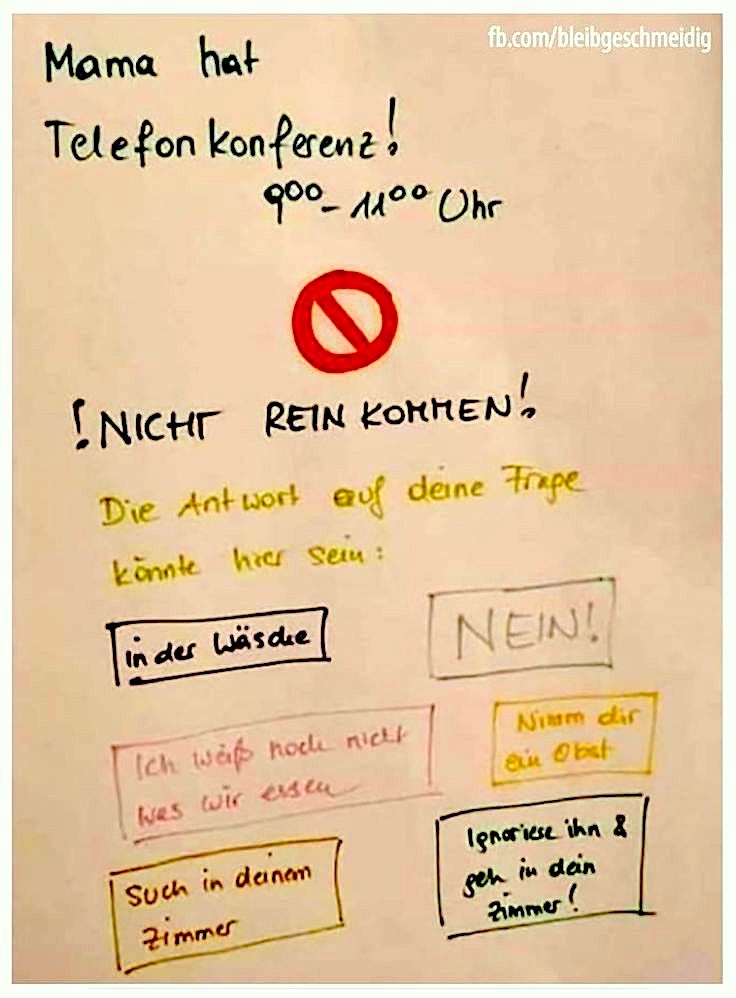 fb.com/bleibgeschmeidig
Mama hat
Telefonkonferenz!
9⁰⁰ - 11⁰⁰ Uhr
!NICHT REIN KOMMEN!
Die Antwort auf deine Frage
könnte hier sein:
in der Wäsche
NEIN!
Ich weiß noch nicht
was wir essen
Nimm dir
ein Obst
Such in deinem
Zimmer
Ignoriese ihn &
geh in dein
Zimmer!